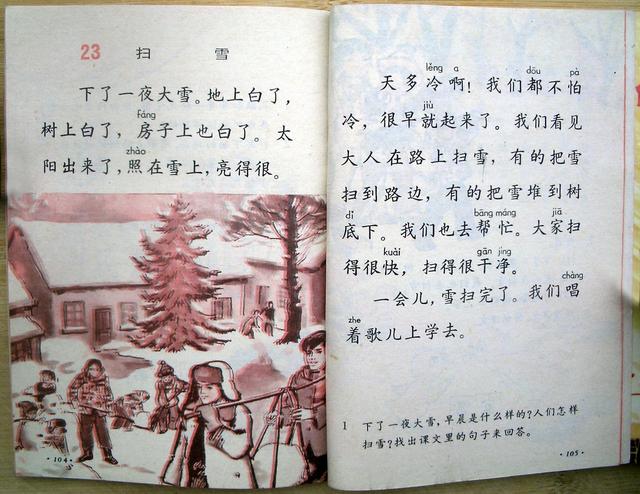 23 扫雪
下了一夜大雪。地上白了，
fáng
树上白了，房子上也白了。太
zhào
阳出来了，照在雪上，亮得很。
·104·
lěng a dōu pà
天多冷啊！我们都不怕
jiù
冷，很早就起来了。我们看见
大人在路上扫雪，有的把雪
扫到路边，有的把雪堆到树
dǐ bāng máng jiā
底下。我们也去帮忙。大家扫
kuài gān jìng
得很快，扫得很干净。
chàng
一会儿，雪扫完了。我们唱
zhe
着歌儿上学去。
1 下了一夜大雪，早晨是什么样的？人们怎样
扫雪？找出课文里的句子来回答。
·105·